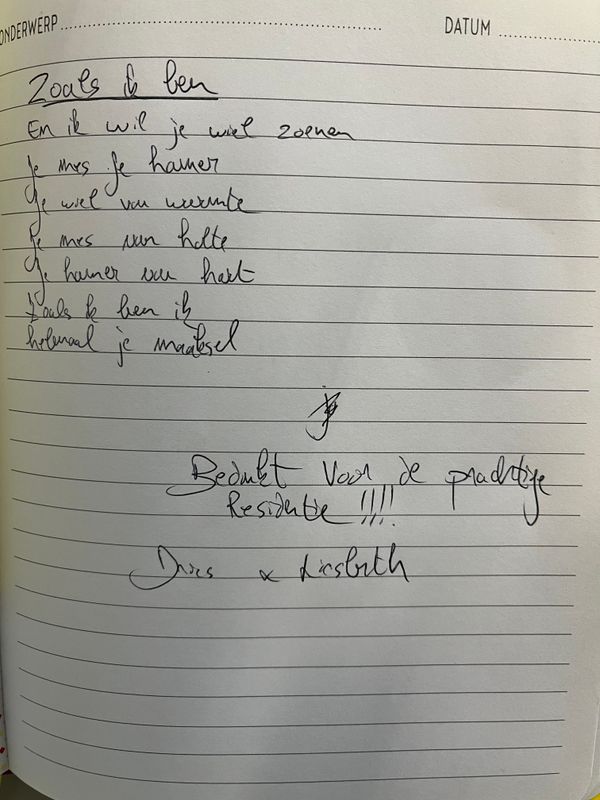 ONDERWERP
DATUM
Zoals ik ben
En ik wil je wiel zoenen
Je mes je hamer
Je wiel van warmte
Je mes van holte
Je hamer van hart
Zoals ik ben ik
helemaal je maaksel
Bedankt voor de prachtige
Residentie !!!!
Dries & Liesbeth